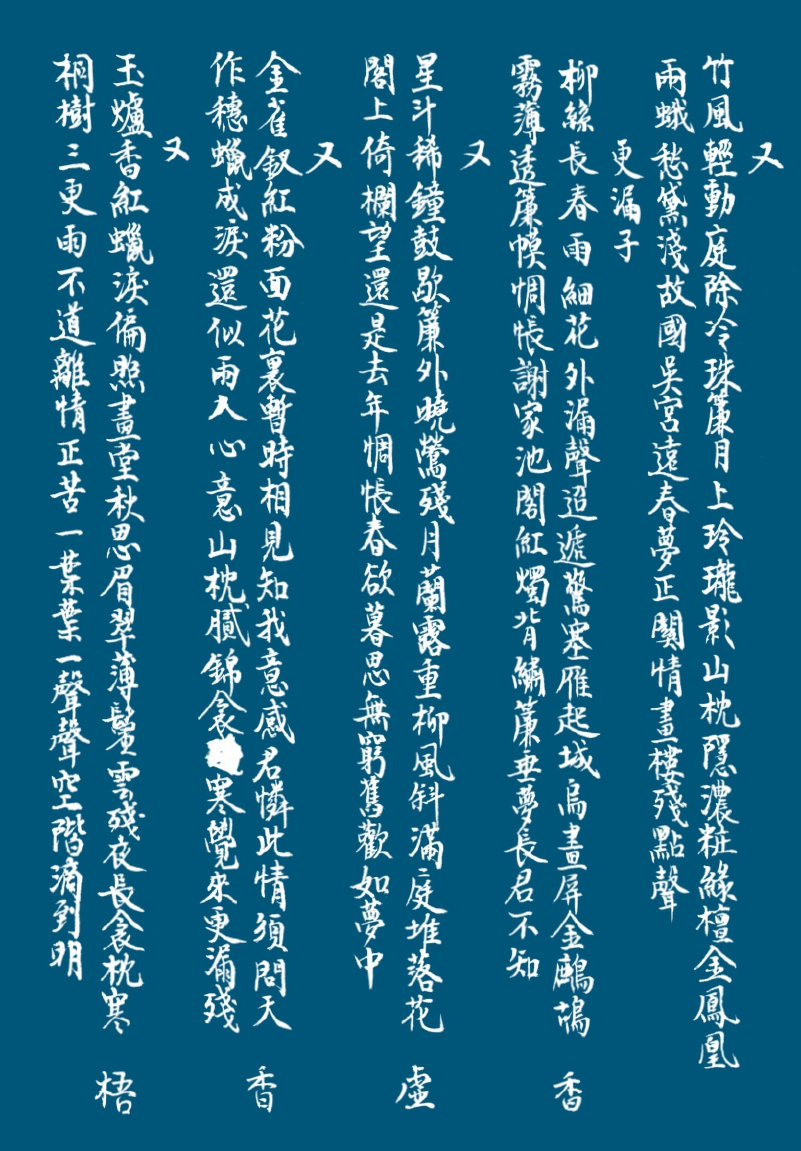 又
竹風輕動庭除冷珠簾月上玲瓏影山枕隱濃粧綠檀金鳳凰
兩蛾愁黛淺故國吳宮遠春夢正關情畫樓殘點聲
更漏子
柳絲長春雨細花外漏聲迢遞驚塞雁起城烏畫屏金鷓鴣香
霧薄透簾幙惆悵謝家池閣紅燭背繡簾垂夢長君不知
又
星斗稀鐘鼓歇簾外曉鶯殘月蘭露重柳風斜滿庭堆落花虛
閣上倚欄望還是去年惆悵春欲暮思無窮舊歡如夢中
又
金雀釵紅粉面花裏暫時相見知我意感君憐此情須問天香
作穗蠟成淚還似兩人心意山枕膩錦衾寒覺來更漏殘
又
玉爐香紅蠟淚偏照畫堂秋思眉翠薄鬢雲殘夜長衾枕寒梧
桐樹三更雨不道離情正苦一葉葉一聲聲空階滴到明